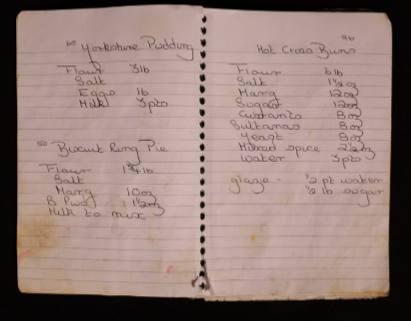 Yorkshire Pudding
Flour 3lb
Salt
Eggs 1lb
Milk 3pts
Biscuit Ring Pie
Flour 1¾lb
Salt
Marg 10oz
B Pwd 1½oz
Milk to mix
Hot Cross Buns
Flour 6lb
Salt 1½oz
Marg 12oz
Sugar 12oz
Currants 8oz
Sultanas 8oz
Yeast 8oz
Mixed spice 2½oz
water 3pts
glaze - ½ pt water
½ lb sugar